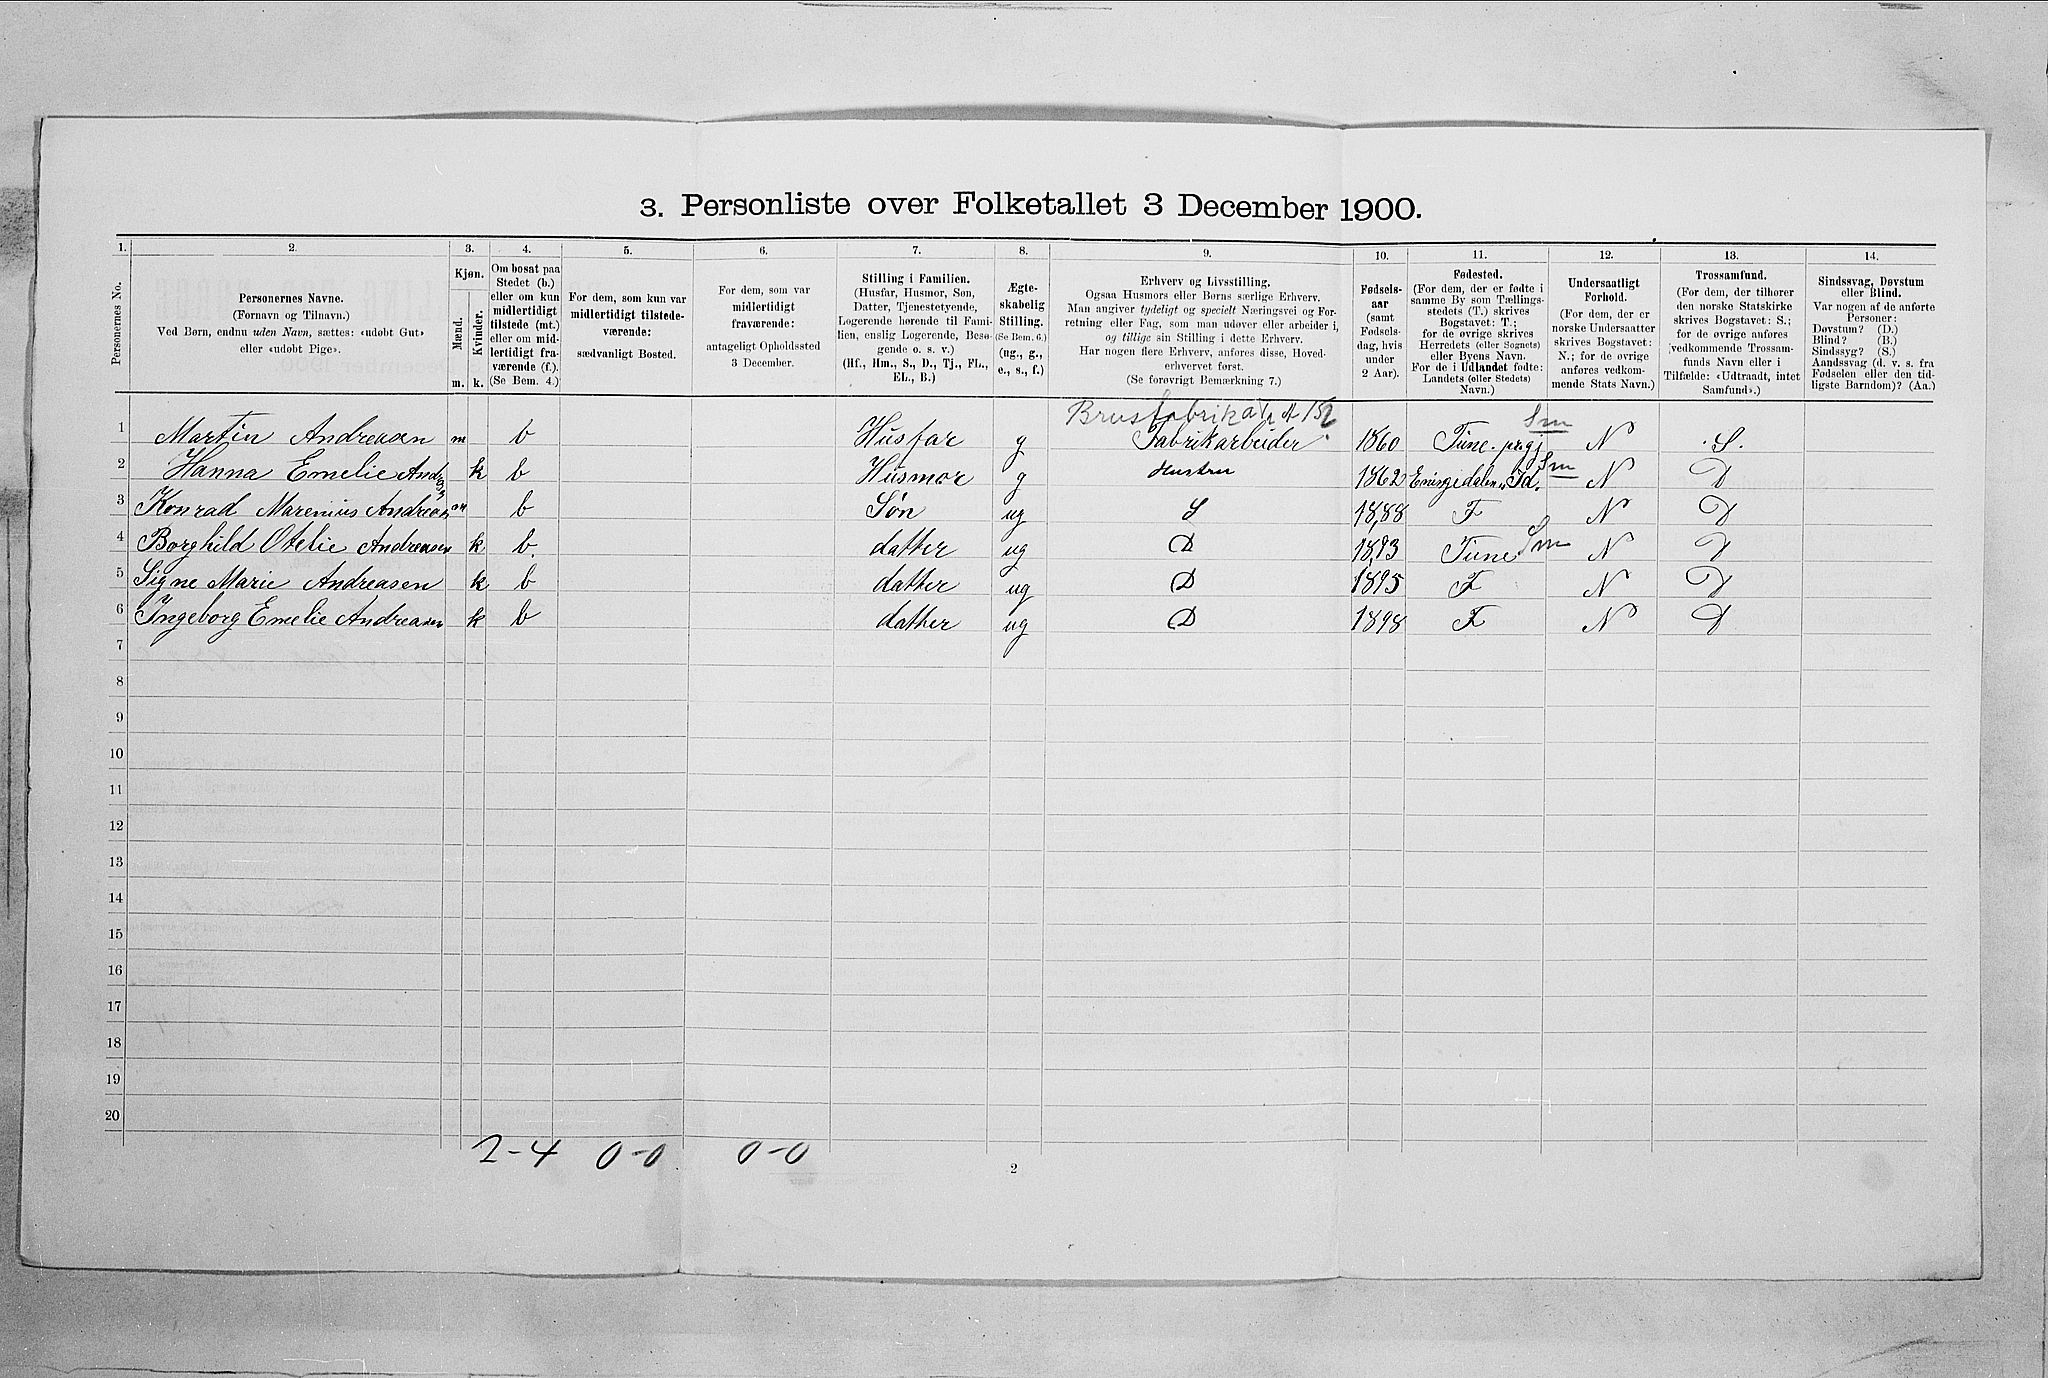 3. Personliste over Folketallet 3 December 1900.
1. 2. 3. 4. 5. 6. 7. 8. 9. 10. 11. 12. 13. 14.
Personernes No.
Personernes Navne.
(Fornavn og Tilnavn.)
Ved Børn, endnu uden Navn, sættes: «udøbt Gut»
eller «udøbt Pige».
Kjøn.
Mænd.
Kvinder.
m. k.
Om bosat paa
Stedet (b.)
eller om kun
midlertidigt
tilstede (mt.)
eller om mid-
lertidigt fra-
værende (f.).
(Se Bem. 4.)
For dem, som kun var
midlertidigt tilstede-
værende:
sædvanligt Bosted.
For dem, som var
midlertidigt
fraværende:
antageligt Opholdssted
3 December.
Stilling i Familien.
(Husfar, Husmor, Søn,
Datter, Tjenestetyende,
Logerende hørende til Fami-
lien, enslig Logerende, Besø-
gende o. s. v.)
(Hf., Hm., S., D., Tj., FL.,
EL., B.)
Ægte-
skabelig
Stilling.
(Se Bem. 6.)
(ug., g.,
e., s., f.)
Erhverv og Livsstilling.
Ogsaa Husmors eller Børns særlige Erhverv.
Man angiver tydeligt og specielt Næringsvei og For-
retning eller Fag, som man udøver eller arbeider i,
og tillige sin Stilling i dette Erhverv.
Har nogen flere Erhverv, anføres disse, Hoved-
erhvervet først.
(Se forøvrigt Bemærkning 7.)
Fødsels-
aar
(samt
Fødsels-
dag, hvis
under
2 Aar).
Fødested.
(For dem, der er fødte i
samme By som Tællings-
stedets (T.) skrives
Bogstavet: T.;
for de øvrige skrives
Herredets (eller Sognets)
eller Byens Navn.
For de i Udlandet fødte:
Landets (eller Stedets)
Navn.)
Undersaatligt
Forhold.
(For dem, der er
norske Undersaatter
skrives Bogstavet:
N.; for de øvrige
anføres vedkom-
mende Stats Navn.)
Trossamfund.
(For dem, der tilhører
den norske Statskirke
skrives Bogstavet: S.;
for de øvrige anføres
vedkommende Trossam-
funds Navn eller i
Tilfælde: «Udtraadt, intet
Samfund».)
Sindssvag, Døvstum
eller Blind.
Var nogen af de anførte
Personer:
Døvstum? (D.)
Blind? (B.)
Sindssyg? (S.)
Aandssvag (d. v. s. fra
Fødselen eller den tid-
ligste Barndom)? (Aa.)
Brusfabrik Sm
1 Martin Andreasen m b Husfar g Fabrikarbeider 1860 Tune prgj N S.
2 Hanna Emelie Andresen k b Husmor g Hustru 1862 Id. Sm N D
3 Konrad Marenius Andreasen m b Søn ug S 1888 F N D
4 Borghild Otelie Andreasen k b. datter ug D 1893 Tune Sm N D
5 Signe Marie Andreasen k b datter ug D 1895 F N D
6 Ingeborg Emelie Andreasen k b datter ug D 1898 F N D
7
8
9
10
11
12
13
14
15
16
17
18
19
20
2-4 0-0 0-0
2